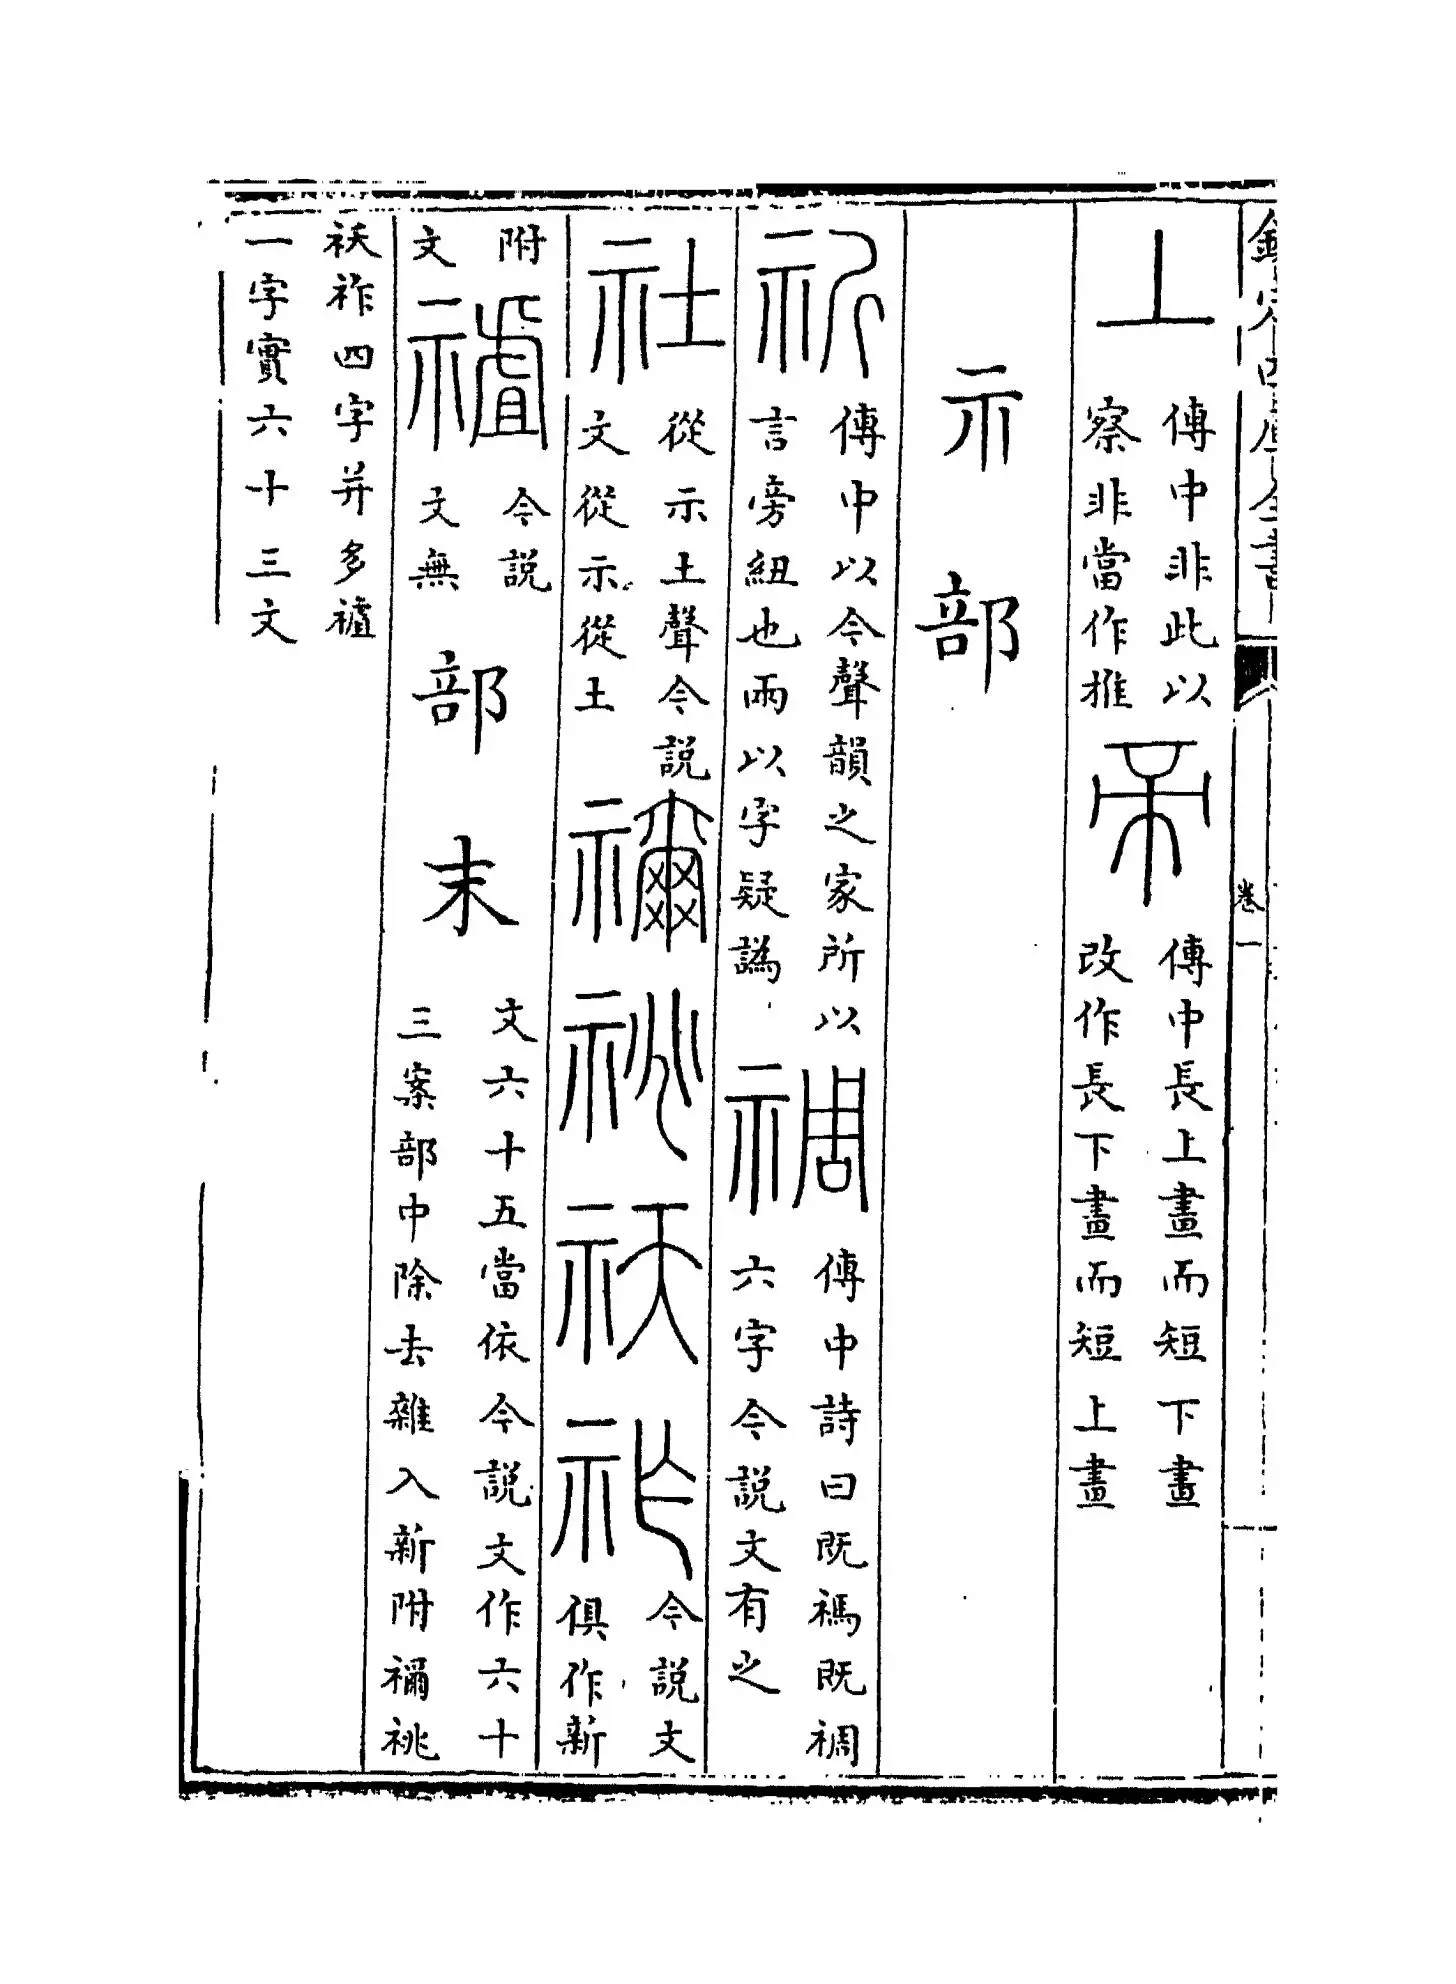 欽定四庫全書
卷一
丄
傳中非此以
察非當作推
帝
傳中長上畫而短下畫
改作長下畫而短上畫
示部
祈
傳中以今聲韻之家所以
言旁紐也兩以字疑譌
禂
傳中詩曰既禡既禂
六字今説文有之
社
從示土聲今説
文從示從土
禰祧祆祚
今説文
俱作新
附
文
𥛜
今説
文無
部末
文六十五當依今説文作六十
三案部中除去雜入新附禰祧
祆祚四字并多𥛜
一字實六十三文